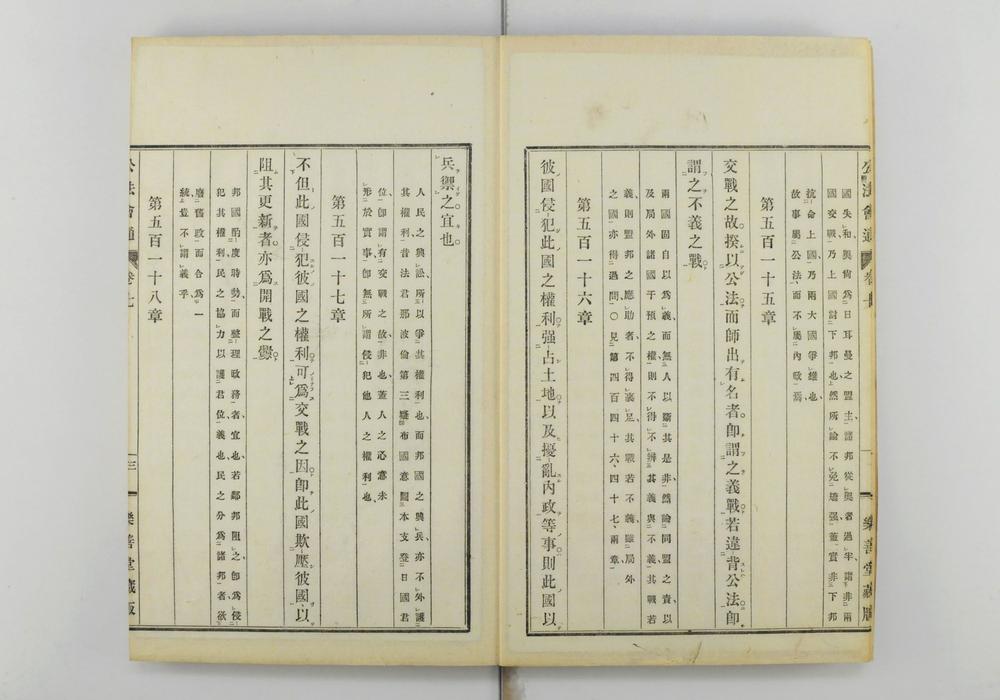 國失和奧嘗爲日耳曼之盟主諸邦從奧者過半謂非兩
國交戰乃上國討下邦也然所論不免墻强葢實非下邦
抗命上國乃兩大國爭雄也
故事屬公法而不屬內政焉
第五百一十五章
交戰之故揆以公法而師出有名者卽謂之義戰若違背公法卽
謂之不義之戰
兩國固自以爲義而無人以斷其是非然論同盟之責以
及局外諸國干預之權則不得不辨其義與不義其戰若
義則盟邦之應助者不得裹足其戰若不義雖局外
之國亦得過問○見第四百四十六四十七兩章
第五百一十六章
彼國侵犯此國之權利强占土地以及擾亂內政等事則此國以
公法會通
卷七
樂善堂藏版
兵禦之宜也
人民之興訟所以爭其權利也而邦國之興兵亦不外護
其權利昔法君那波倫第三疑布國意圖本支登日國君
位卽謂有交戰之故非也葢人之心意未
形於實事卽無所謂侵犯他人之權利也
第五百一十七章
不但此國侵犯彼國之權利可爲交戰之因卽此國欺壓彼國以
阻其更新者亦爲開戰之釁
邦國酌度時勢而整理政務者宜也若鄰邦阻之卽爲侵
犯其權利民之協力以護君位義也民之分爲諸邦者欲
廢舊政而合爲一
統豈不謂義乎
第五百一十八章
公法會通
卷七
三
樂善堂藏版